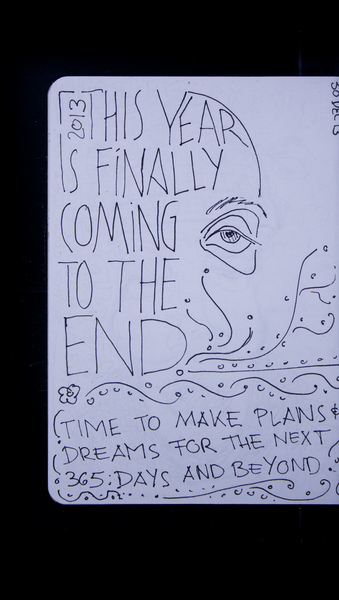 2013 THIS YEAR
IS FINALLY
COMING
TO THE
END
TIME TO MAKE PLANS &
DREAMS FOR THE NEXT
365 DAYS AND BEYOND.